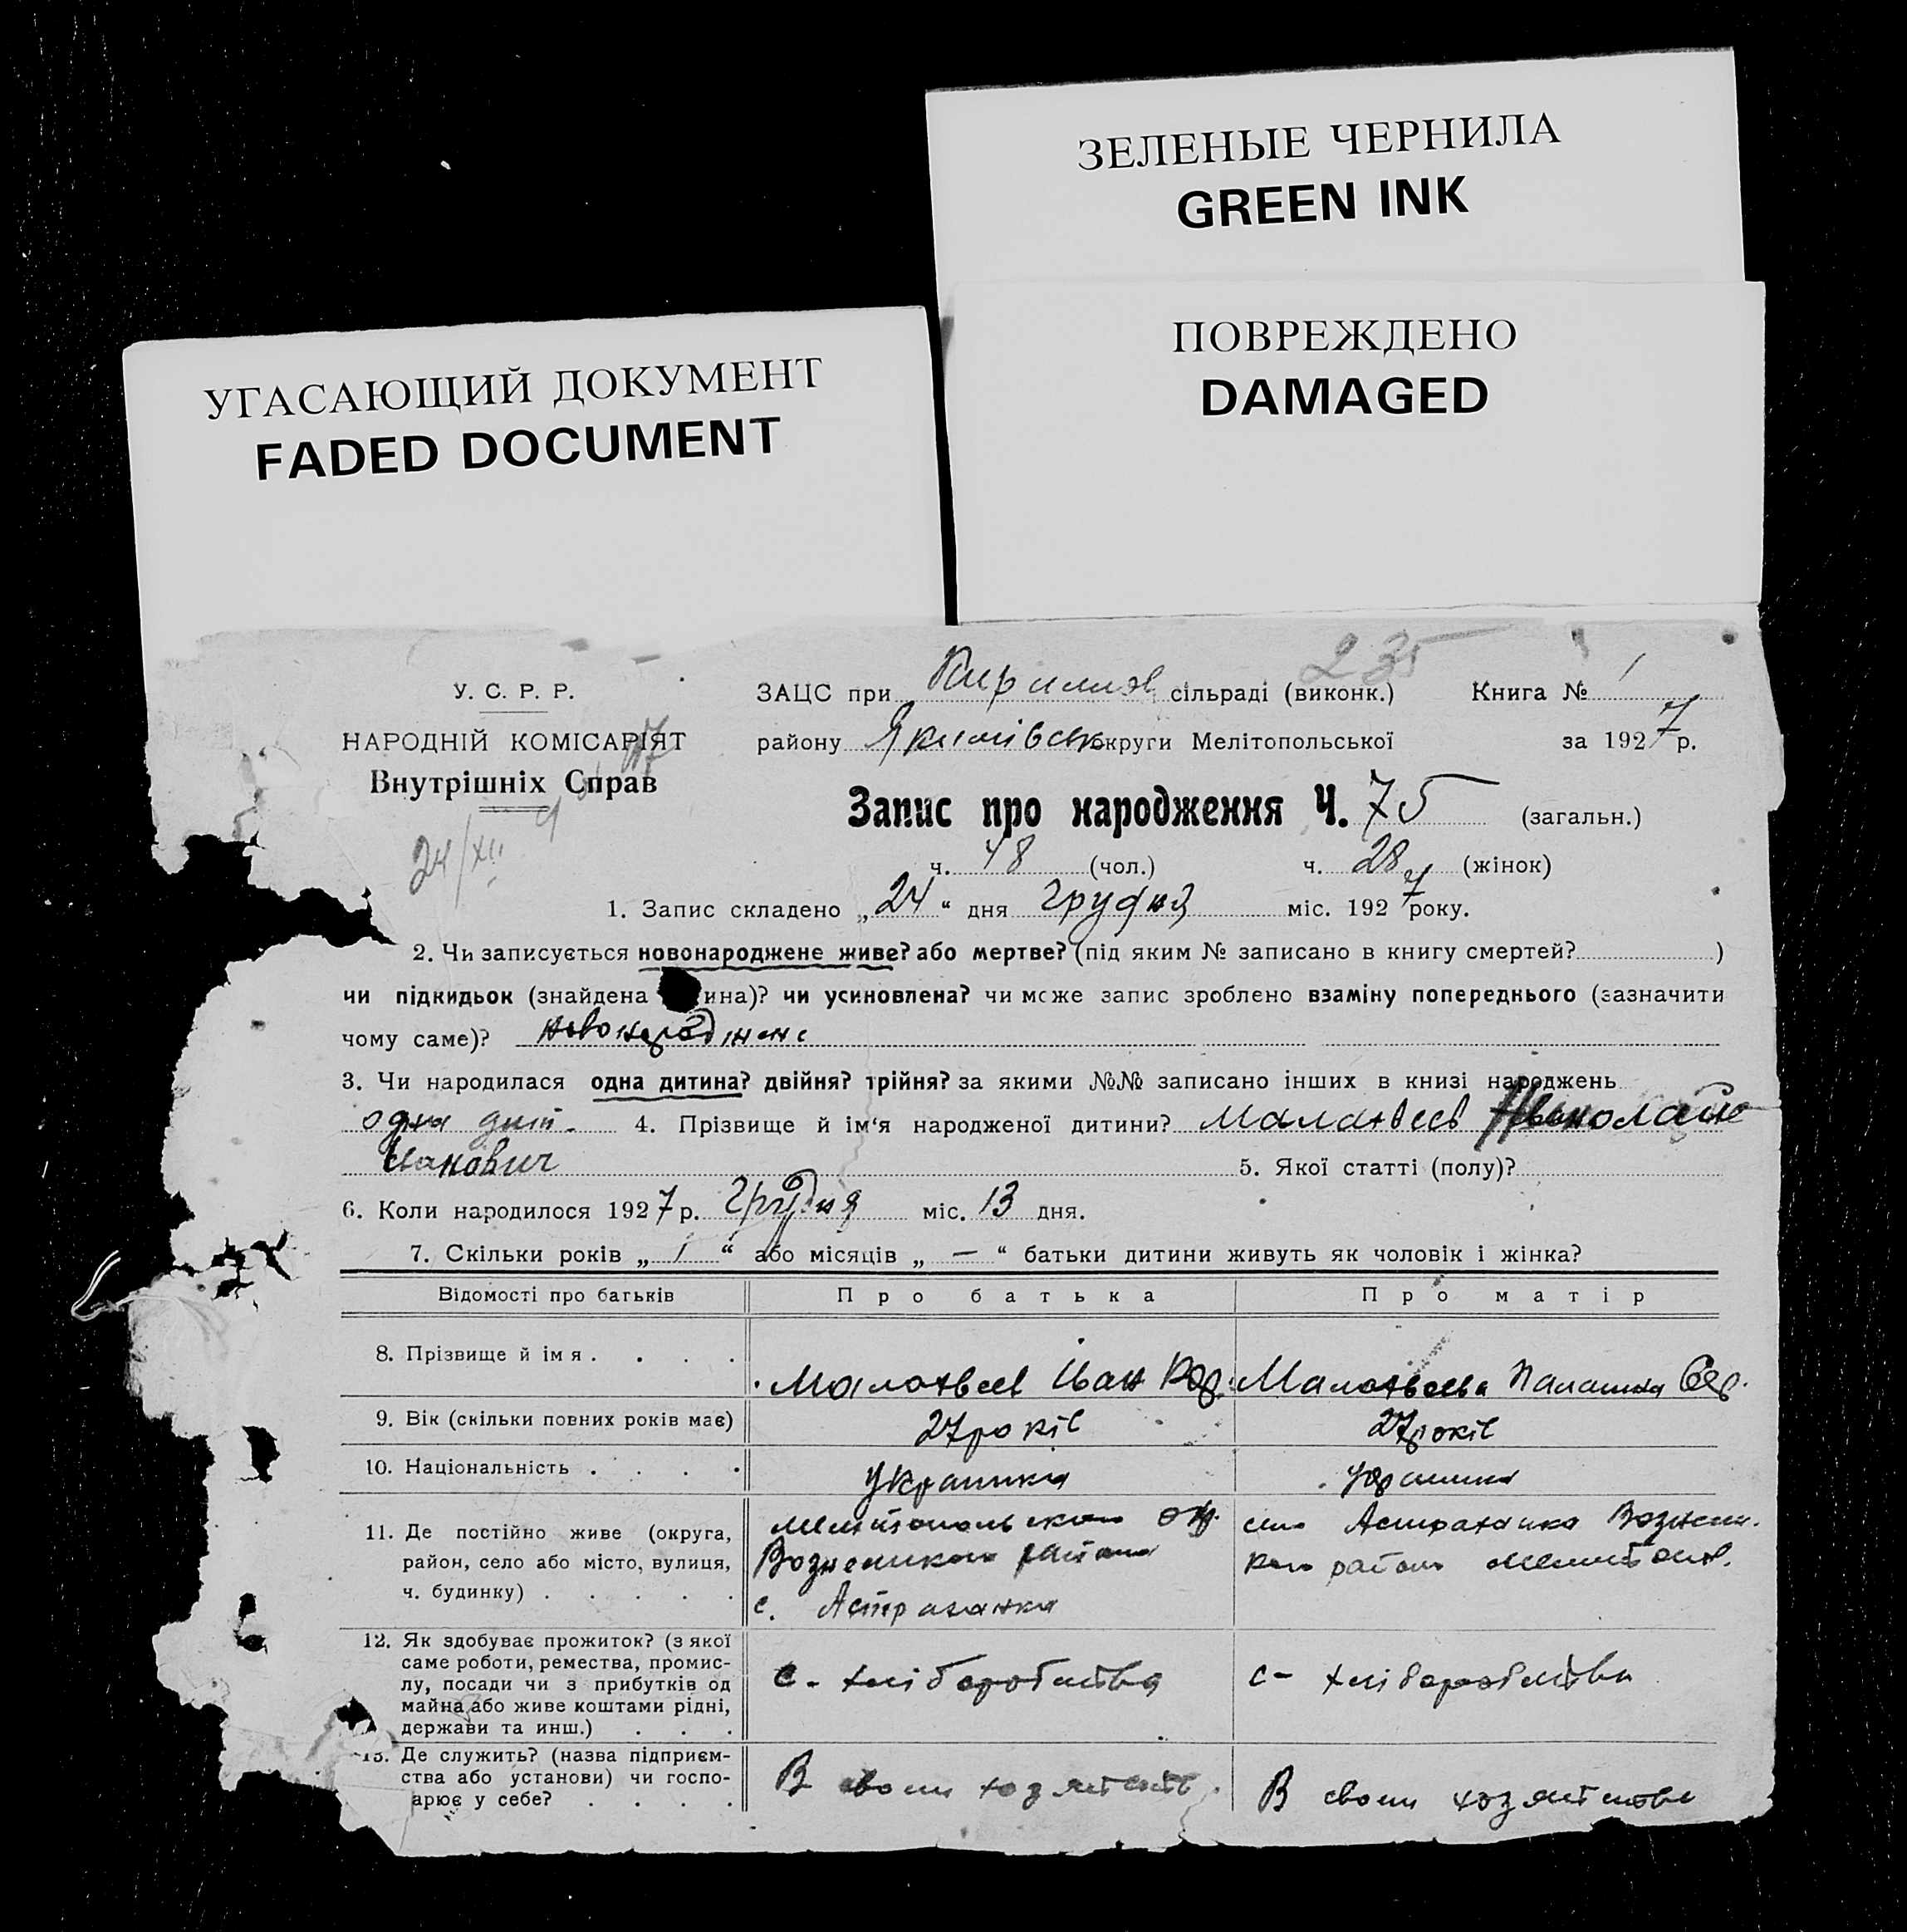 ЗЕЛЕНЫЕ ЧЕРНИЛА
GREEN INK
ПОВРЕЖДЕНО
DAMAGED
УГАСАЮЩИЙ ДОКУМЕНТ
FADED DOCUMENT
235
У. С. Р. Р.
НАРОДНІЙ КОМІСАРІЯТ
Внутрішніх Справ
24/XII
ЗАЦС при сільраді (виконк.) Книга № 1
району Якимівськ округи Мелітопольської за 1927 р.
Запис про народження Ч. 75 (загальн.)
ч. 48 (чол.) ч. 28 (жінок)
1. Запис складено „24“ дня грудня міс. 1927 року.
2. Чи записується новонароджене живе? або мертве? (під яким № записано в книгу смертей? )
чи підкидьок (знайдена ина)? чи усиновлена? чи може запис зроблено взаміну попереднього (зазначити
чому саме)? новонароджене
3. Чи народилася одна дитина? двійня? трійня? за якими №№ записано інших в книзі народжень
одна дит. 4. Прізвище й ім‘я народженої дитини? Малахвеев
Иванович 5. Якої статті (полу)?
6. Коли народилося 1927 р. грудня міс. 13 дня.
7. Скільки років „1“ або місяців „—“ батьки дитини живуть як чоловік і жінка?
Відомості про батьків Про батька Про матір
8. Прізвище й імя . . . . Малахвеев Іван Малахвеева Палашка
9. Вік (скільки повних років має) 27 років 27 років
10. Національність . . . . Украинка
11. Де постійно живе (округа,
район, село або місто, вулиця,
ч. будинку) . . . . .
Мелитопольскаго ок.
района
с. Астраханка
село Астраханка
района
12. Як здобуває прожиток? (з якої
саме роботи, ремества, промис-
лу, посади чи з прибутків од
майна або живе коштами рідні,
держави та инш.) . . .
с - хліборобства
с - хліборобства
13. Де служить? (назва підприєм-
ства або установи) чи госпо-
арює у себе? . . . .
В своем хозяйстве
В своем хозяйстве